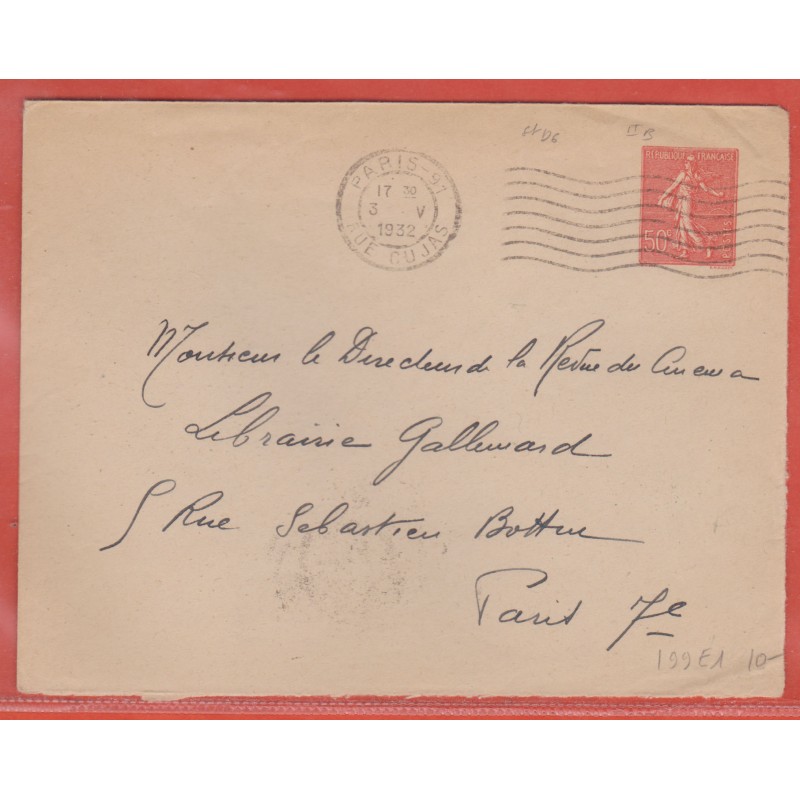 II B
REPUBLIQUE FRANÇAISE
50c
PARIS-91
17 30
3 V
1932
RUE CUJAS
Monsieur le Directeur de la Revue du Cinema
Librairie Gallimard
5 Rue Sebastien Bottin
Paris 7e
199E1 10-